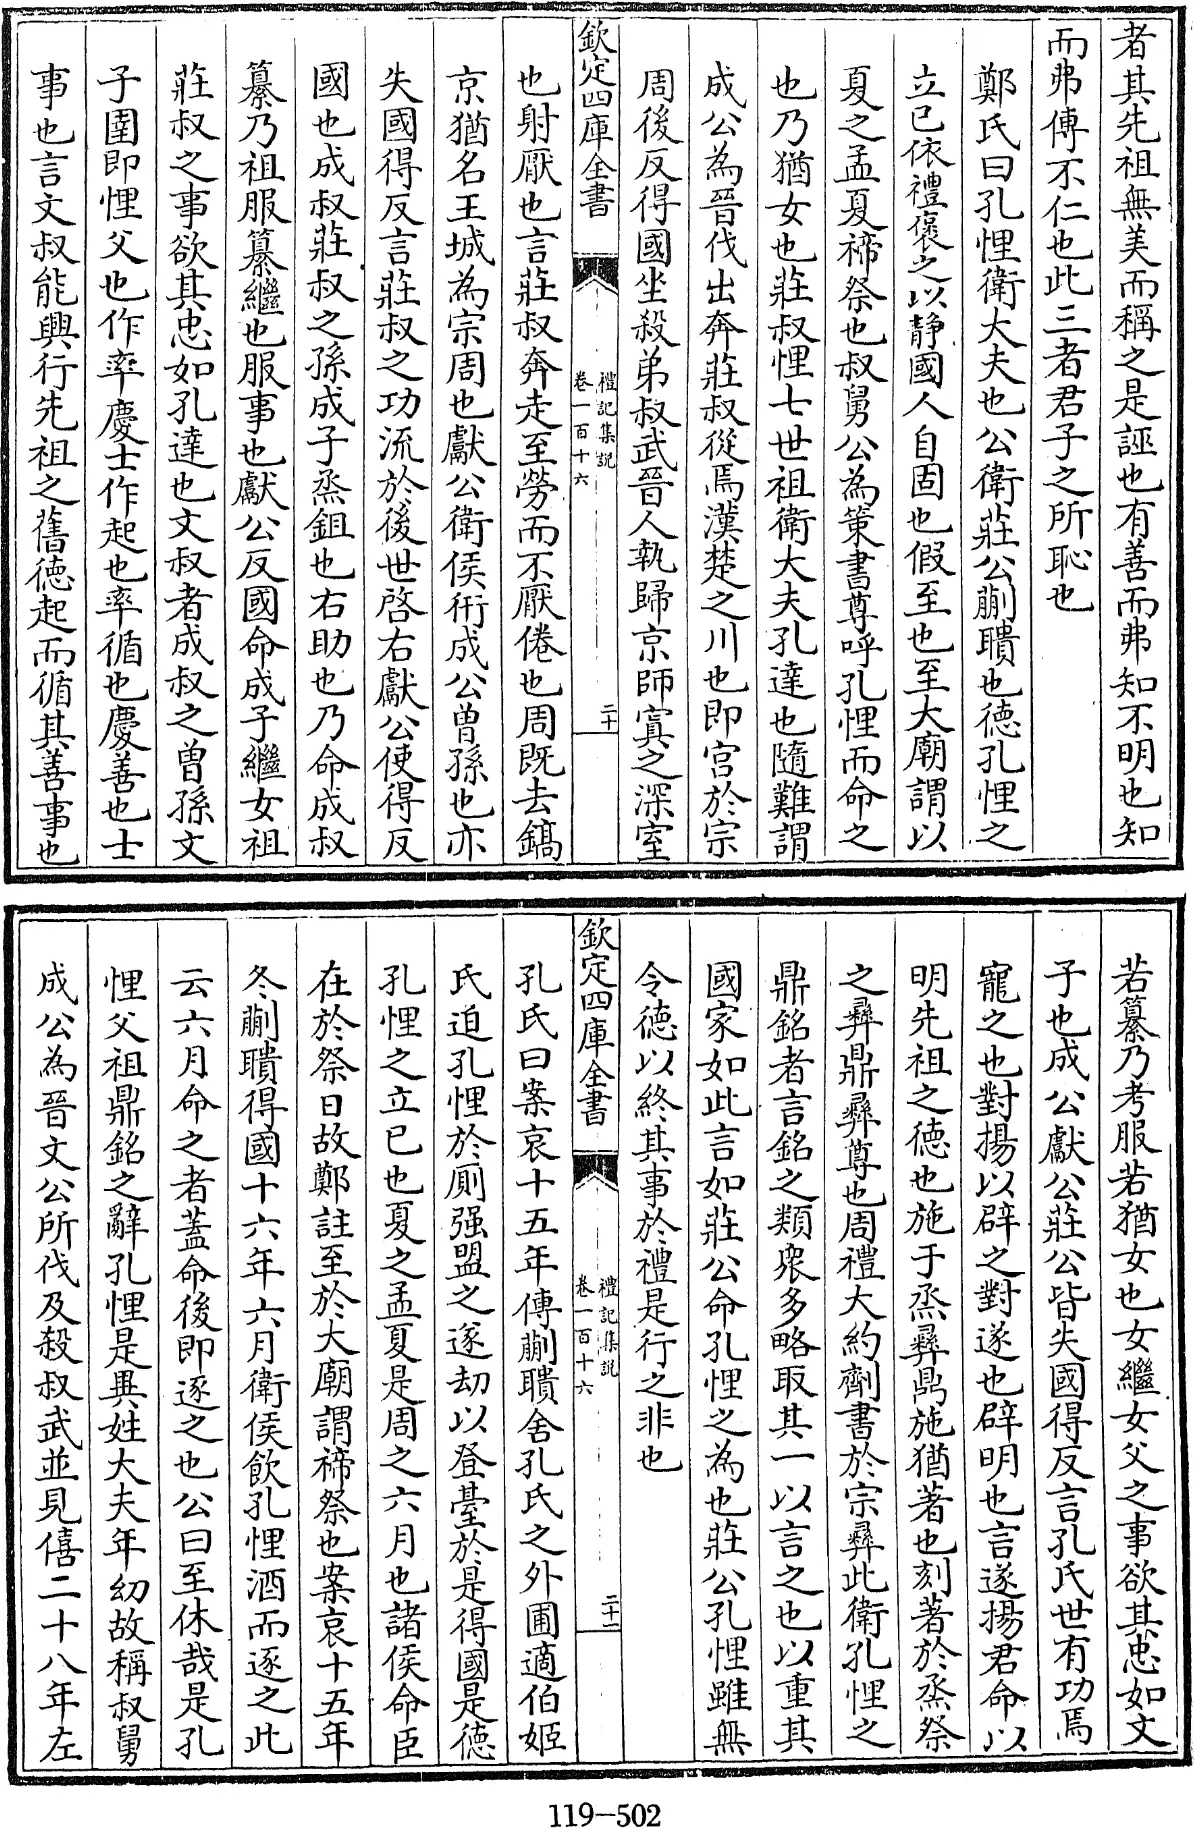 者其先祖無美而稱之是誣也有善而弗知不明也知
而弗傳不仁也此三者君子之所恥也
鄭氏曰孔悝衛大夫也公衛莊公蒯聵也德孔悝之
立已依禮襃之以静國人自固也假至也至大廟謂以
夏之孟夏禘祭也叔舅公為策書尊呼孔悝而命之
也乃猶女也莊叔悝七世祖衛大夫孔達也隨難謂
成公為晉伐出奔莊叔從焉漢楚之川也即宫於宗
周後反得國坐殺弟叔武晉人執歸京師寘之深室
欽定四庫全書
禮記集説
卷一百十六
二十
也射厭也言莊叔奔走至勞而不厭倦也周既去鎬
京猶名王城為宗周也獻公衛侯衎成公曽孫也亦
失國得反言莊叔之功流於後世啓右獻公使得反
國也成叔莊叔之孫成子烝鉏也右助也乃命成叔
纂乃祖服纂繼也服事也獻公反國命成子繼女祖
莊叔之事欲其忠如孔達也文叔者成叔之曽孫文
子圉即悝父也作率慶士作起也率循也慶善也士
事也言文叔能興行先祖之舊徳起而循其善事也
若纂乃考服若猶女也女繼女父之事欲其忠如文
子也成公獻公莊公皆失國得反言孔氏世有功焉
寵之也對揚以辟之對遂也辟明也言遂揚君命以
明先祖之徳也施于烝彝鼎施猶著也刻著於烝祭
之彝鼎彝尊也周禮大約劑書於宗彝此衛孔悝之
鼎銘者言銘之類衆多略取其一以言之也以重其
國家如此言如莊公命孔悝之為也莊公孔悝雖無
令徳以終其事於禮是行之非也
欽定四庫全書
禮記集説
卷一百十六
二十一
孔氏曰案哀十五年傳蒯聵舍孔氏之外圃適伯姬
氏迫孔悝於厠强盟之遂刼以登臺於是得國是徳
孔悝之立已也夏之孟夏是周之六月也諸侯命臣
在於祭日故鄭註至於大廟謂禘祭也案哀十五年
冬蒯聵得國十六年六月衛侯飲孔悝酒而逐之此
云六月命之者葢命後即逐之也公曰至休哉是孔
悝父祖鼎銘之辭孔悝是異姓大夫年幼故稱叔舅
成公為晉文公所伐及殺叔武並見僖二十八年左
119-502